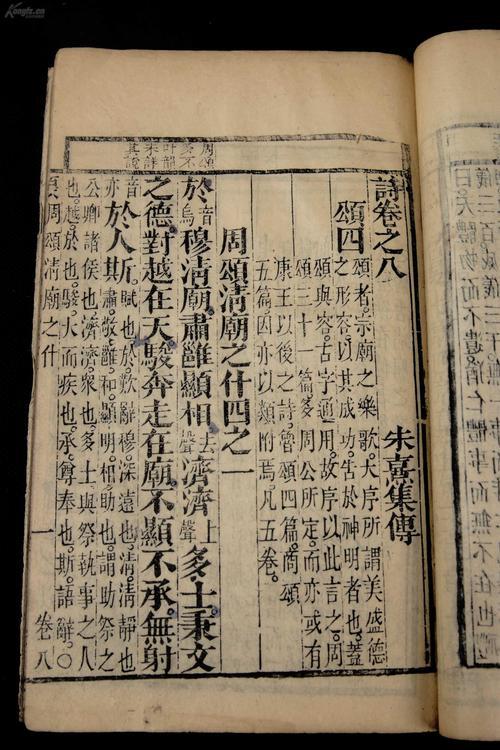 Kongfz.cn
儀三百威儀三千無一
曰天體物而不遺猶仁體事而
周頌
多不
叶韻
未詳
其說
詩卷之八
朱熹集傳
頌四
頌者宗廟之樂歌。大序所謂美盛德
之形容。以其成功。告於神明者也。蓋
頌與容。古字通用。故序以此言之。周
頌三十一篇。多周公所定。而亦或有
康王以後之詩。魯頌四篇。商頌
五篇。因亦以類附焉。凡五卷。
周頌清廟之什四之一
於音烏穆清廟。肅雝顯相去聲濟濟上聲多士。秉文
之德。對越在天。駿奔走在廟。不顯不承。無射
音亦於人斯。
賦也。於。歎辭。穆。深遠也。清。清靜也。
肅。敬。雝。和。顯。明。相。助也。謂助祭之
公卿諸侯也。濟濟。衆也。多士。與祭執事之人
也。越。於也。駿。大而疾也。承。尊奉也。斯。語辭。○
周頌清廟之什
一
卷八